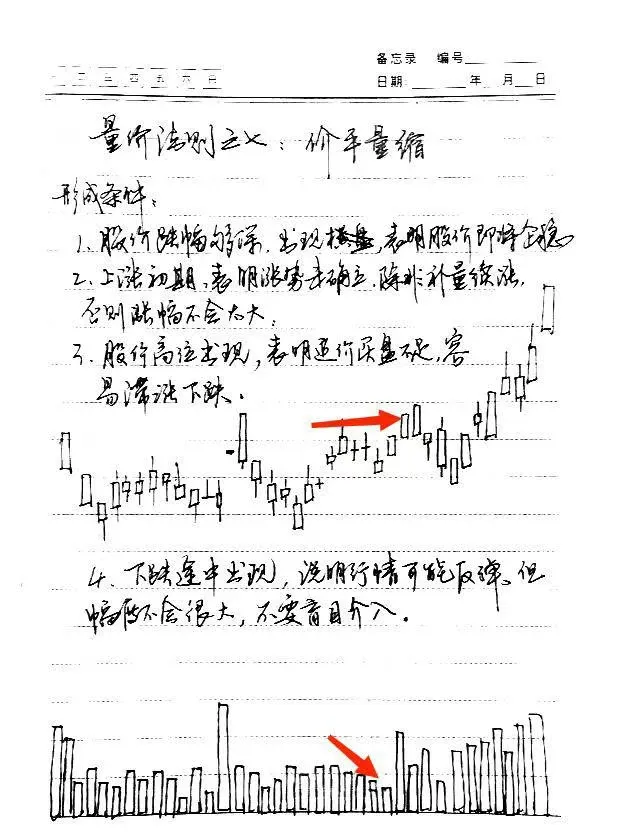 备忘录 编号
一 二 三 四 五 六 日
日期: 年 月 日
量价法则之七：价平量缩
形成条件：
1、股价跌幅够深，出现横盘，表明股价即将企稳
2、上涨初期，表明涨势未确立，除非补量续涨，
否则涨幅不会太大；
3、股价高位出现，表明追价买盘不足，容
易滞涨下跌。
4、下跌途中出现，说明行情可能反弹，但
幅度不会很大，不要盲目介入。